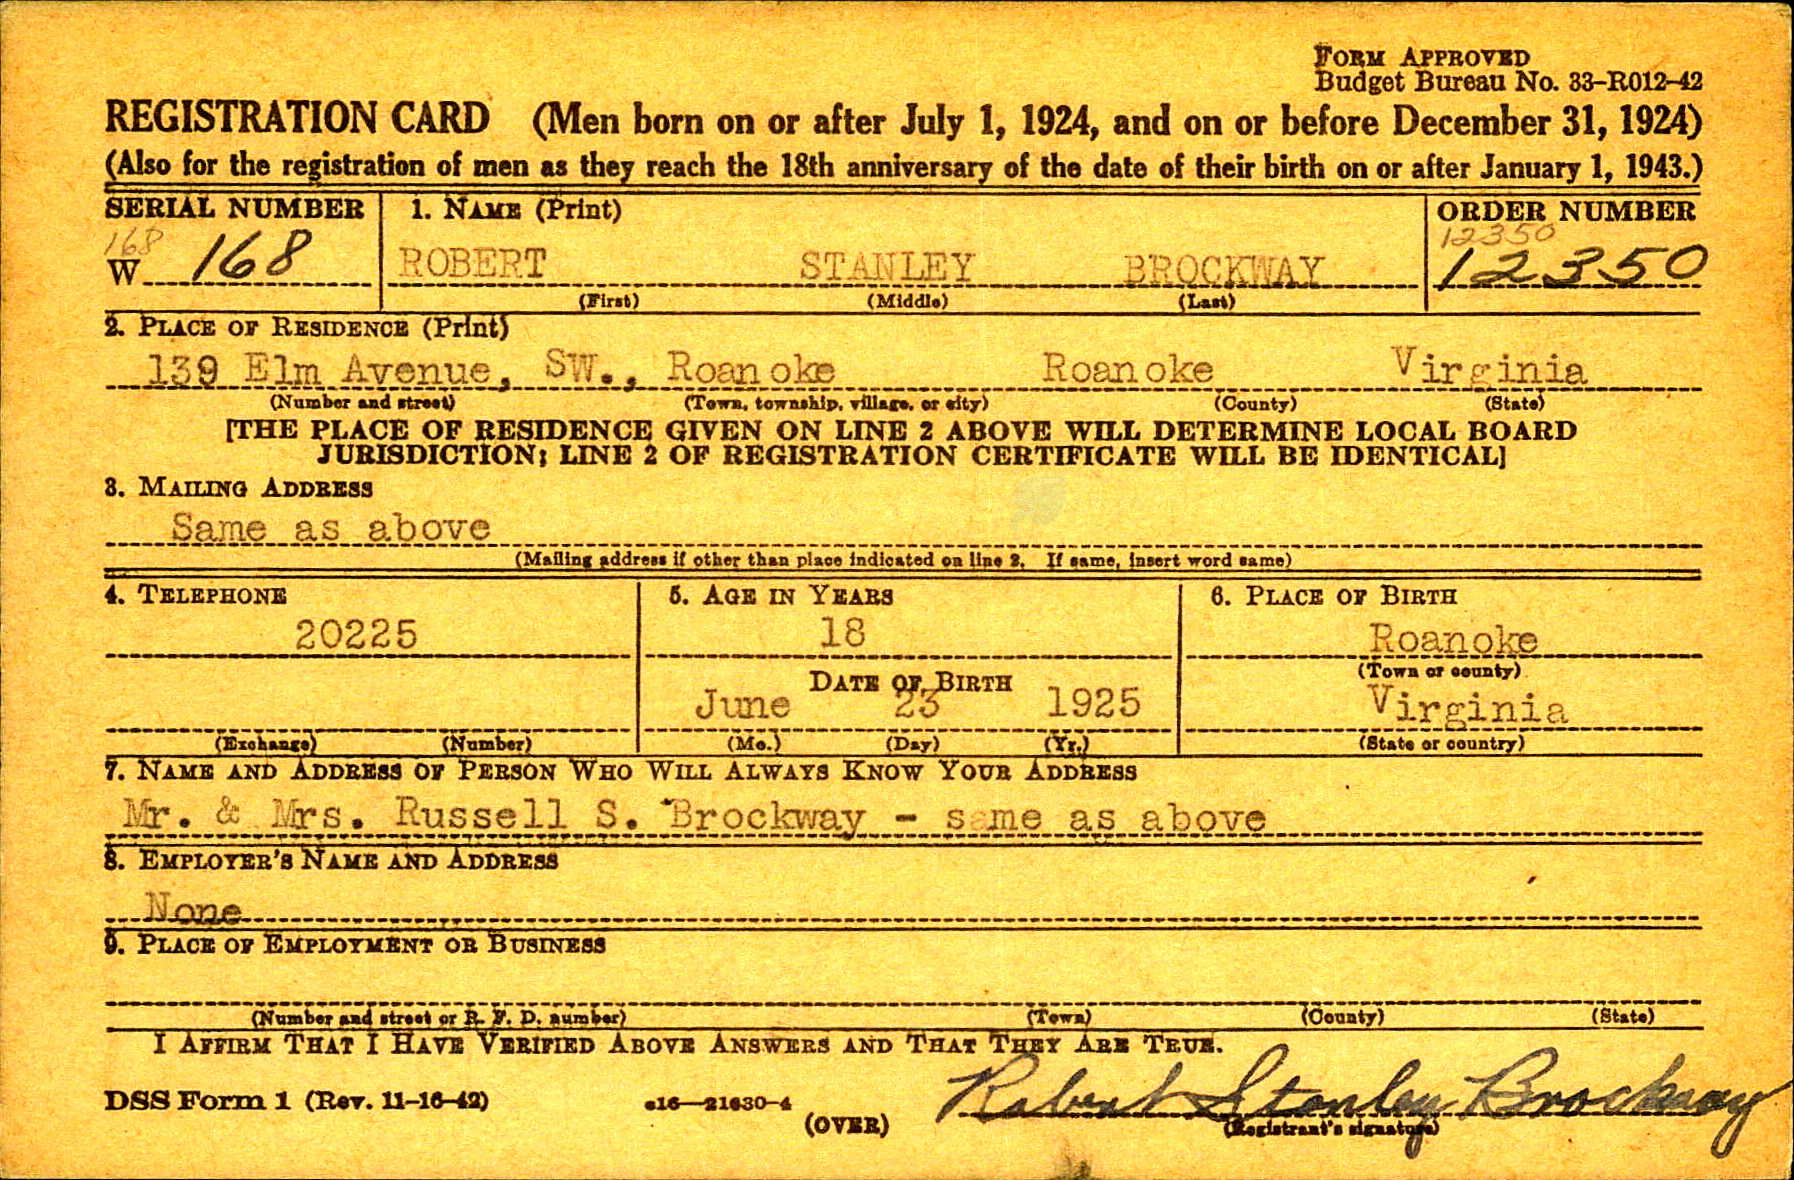 FORM APPROVED
Budget Bureau No. 33-R012-42
REGISTRATION CARD (Men born on or after July 1, 1924, and on or before December 31, 1924)
(Also for the registration of men as they reach the 18th anniversary of the date of their birth on or after January 1, 1943.)
SERIAL NUMBER 1. NAME (Print) ORDER NUMBER
168 12350
W 168 ROBERT STANLEY BROCKWAY 12350
(First) (Middle) (Last)
2. PLACE OF RESIDENCE (Print)
139 Elm Avenue, SW., Roanoke Roanoke Virginia
(Number and street) (Town, township, village, or city) (County) (State)
[THE PLACE OF RESIDENCE GIVEN ON LINE 2 ABOVE WILL DETERMINE LOCAL BOARD
JURISDICTION; LINE 2 OF REGISTRATION CERTIFICATE WILL BE IDENTICAL]
3. MAILING ADDRESS
Same as above
(Mailing address if other than place indicated on line 2. If same, insert word same)
4. TELEPHONE 5. AGE IN YEARS 6. PLACE OF BIRTH
20225 18 Roanoke
(Town or county)
DATE OF BIRTH
June 23 1925 Virginia
(Exchange) (Number) (Mo.) (Day) (Yr.) (State or country)
7. NAME AND ADDRESS OF PERSON WHO WILL ALWAYS KNOW YOUR ADDRESS
Mr. & Mrs. Russell S. Brockway - same as above
8. EMPLOYER'S NAME AND ADDRESS
None
9. PLACE OF EMPLOYMENT OR BUSINESS
(Number and street or R. F. D. number) (Town) (County) (State)
I AFFIRM THAT I HAVE VERIFIED ABOVE ANSWERS AND THAT THEY ARE TRUE.
DSS Form 1 (Rev. 11-16-42) 16—21630-4 Robert Stanley Brockway
(OVER) (Registrant's signature)